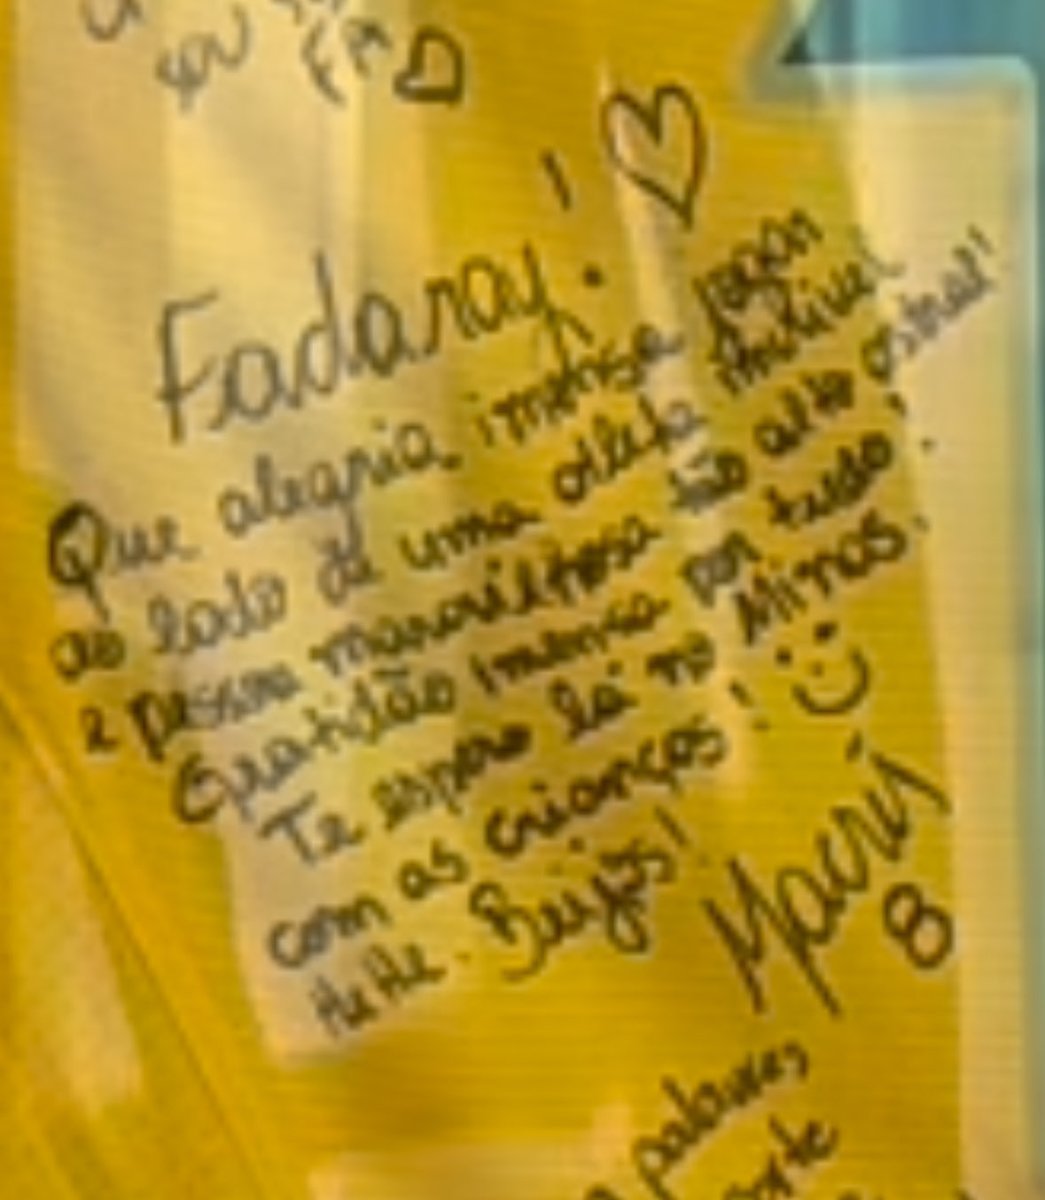 seu
FÃ
Fadaray!
Que alegria imensa jogar
ao lado de uma atleta incrível
e pessoa maravilhosa tão alto astral!
Gratidão imensa por tudo!
Te espero lá no Minas.
com as crianças!
HeHe. Beijos!
Macris
8
palavras